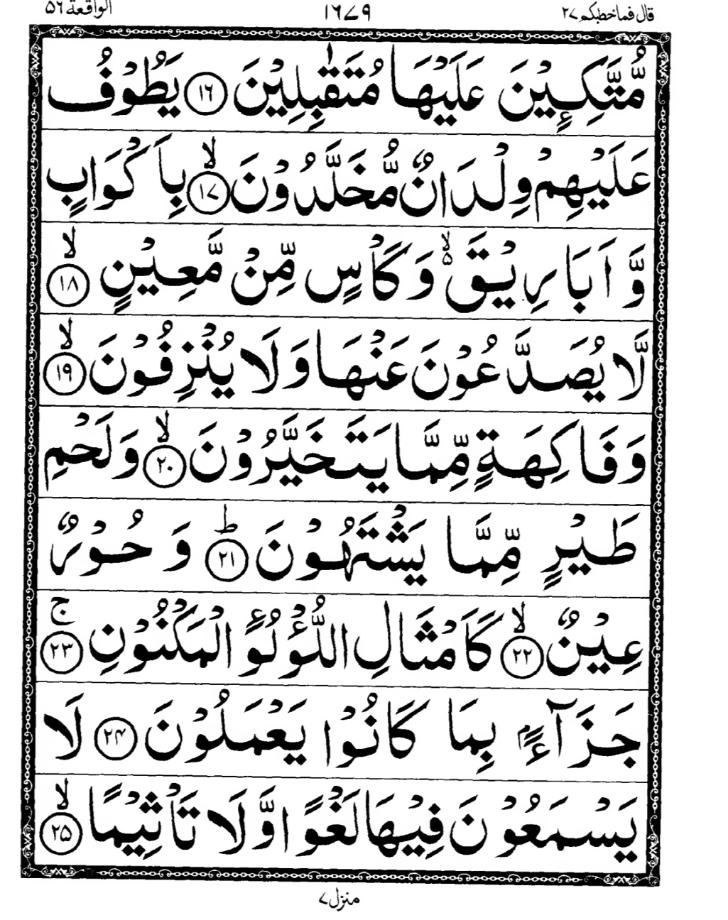 قال فما خطبكم ٢٧ ١٦٧٩ الواقعة ٥٦
مُّتَّكِـِٕيْنَ عَلَيْهَا مُتَقٰبِلِيْنَ ﴿۱۶﴾ يَطُوْفُ
عَلَيْهِمْ وِلْدَانٌ مُّخَلَّدُوْنَ ۙ﴿۱۷﴾ بِاَكْوَابٍ
وَّ اَبَارِيْقَ ۙ۬ وَ كَاْسٍ مِّنْ مَّعِيْنٍ ۙ﴿۱۸﴾
لَّا يُصَدَّعُوْنَ عَنْهَا وَ لَا يُنْزِفُوْنَ ۙ﴿۱۹﴾
وَ فَاكِهَةٍ مِّمَّا يَتَخَيَّرُوْنَ ۙ﴿۲۰﴾ وَ لَحْمِ
طَيْرٍ مِّمَّا يَشْتَهُوْنَ ؕ﴿۲۱﴾ وَ حُوْرٌ
عِيْنٌ ۙ﴿۲۲﴾ كَاَمْثَالِ اللُّؤْلُؤِ الْمَكْنُوْنِ ۚ﴿۲۳﴾
جَزَآءًۢ بِمَا كَانُوْا يَعْمَلُوْنَ ﴿۲۴﴾ لَا
يَسْمَعُوْنَ فِيْهَا لَغْوًا وَّ لَا تَاْثِيْمًا ۙ﴿۲۵﴾
منزل ٧